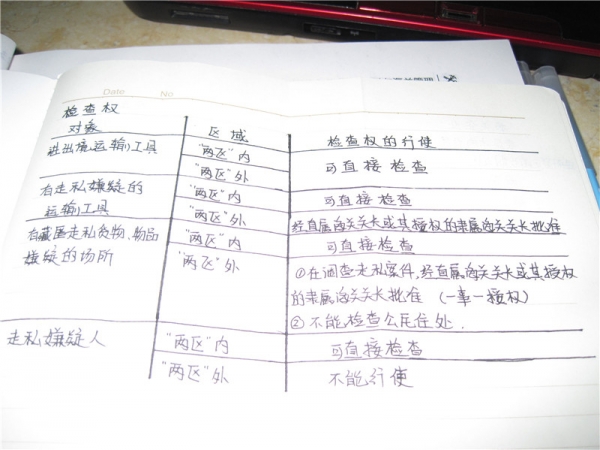 Date No
检查权
对象 区域 检查权的行使
进出境运输工具 "两区"内 可直接检查
"两区"外
有走私嫌疑的 "两区"内 可直接检查
运输工具 "两区"外 经直属海关关长或其授权的隶属海关关长批准
有藏匿走私货物、物品 "两区"内 可直接检查
嫌疑的场所 "两区"外 ①在调查走私案件,经直属海关关长或其授权
的隶属海关关长批准 (一事一授权)
②不能检查公民住处.
走私嫌疑人 "两区"内 可直接检查
"两区"外 不能行使